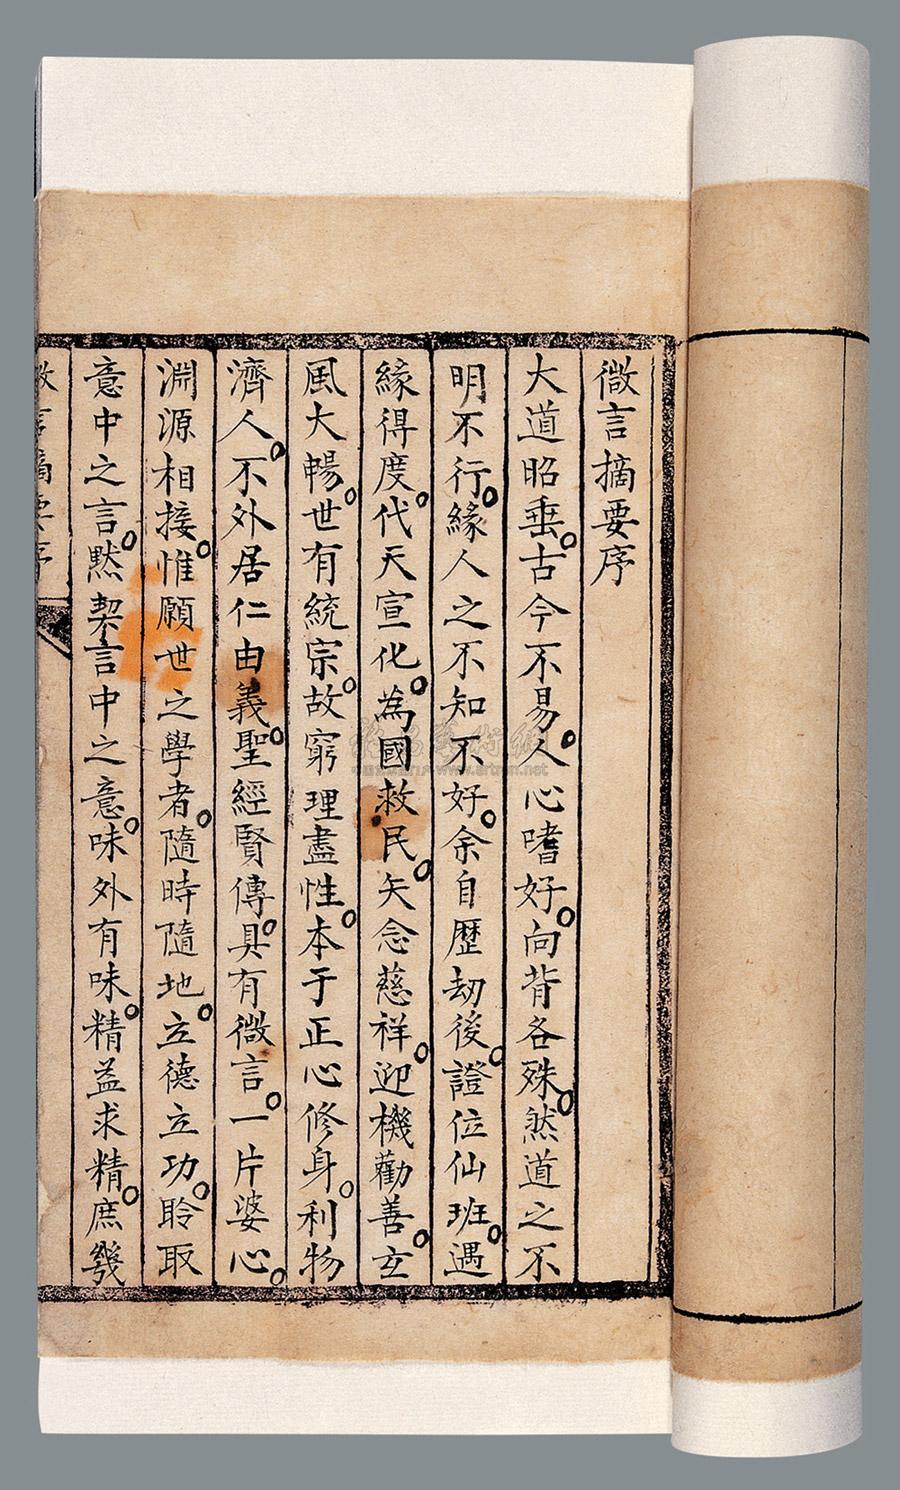 微言摘要序
大道昭垂。古今不易。人心嗜好。向背各殊。然道之不
明不行。緣人之不知不好。余自歷劫後。證位仙班。遇
緣得度。代天宣化。為國救民。矢念慈祥。迎機勸善。玄
風大暢。世有統宗。故窮理盡性。本于正心修身。利物
濟人。不外居仁由義。聖經賢傳。具有微言。一片婆心。
淵源相接。惟願世之學者。隨時隨地。立德立功。聆取
意中之言。默契言中之意。味外有味。精益求精。庶幾
微言摘要序
www.artron.net